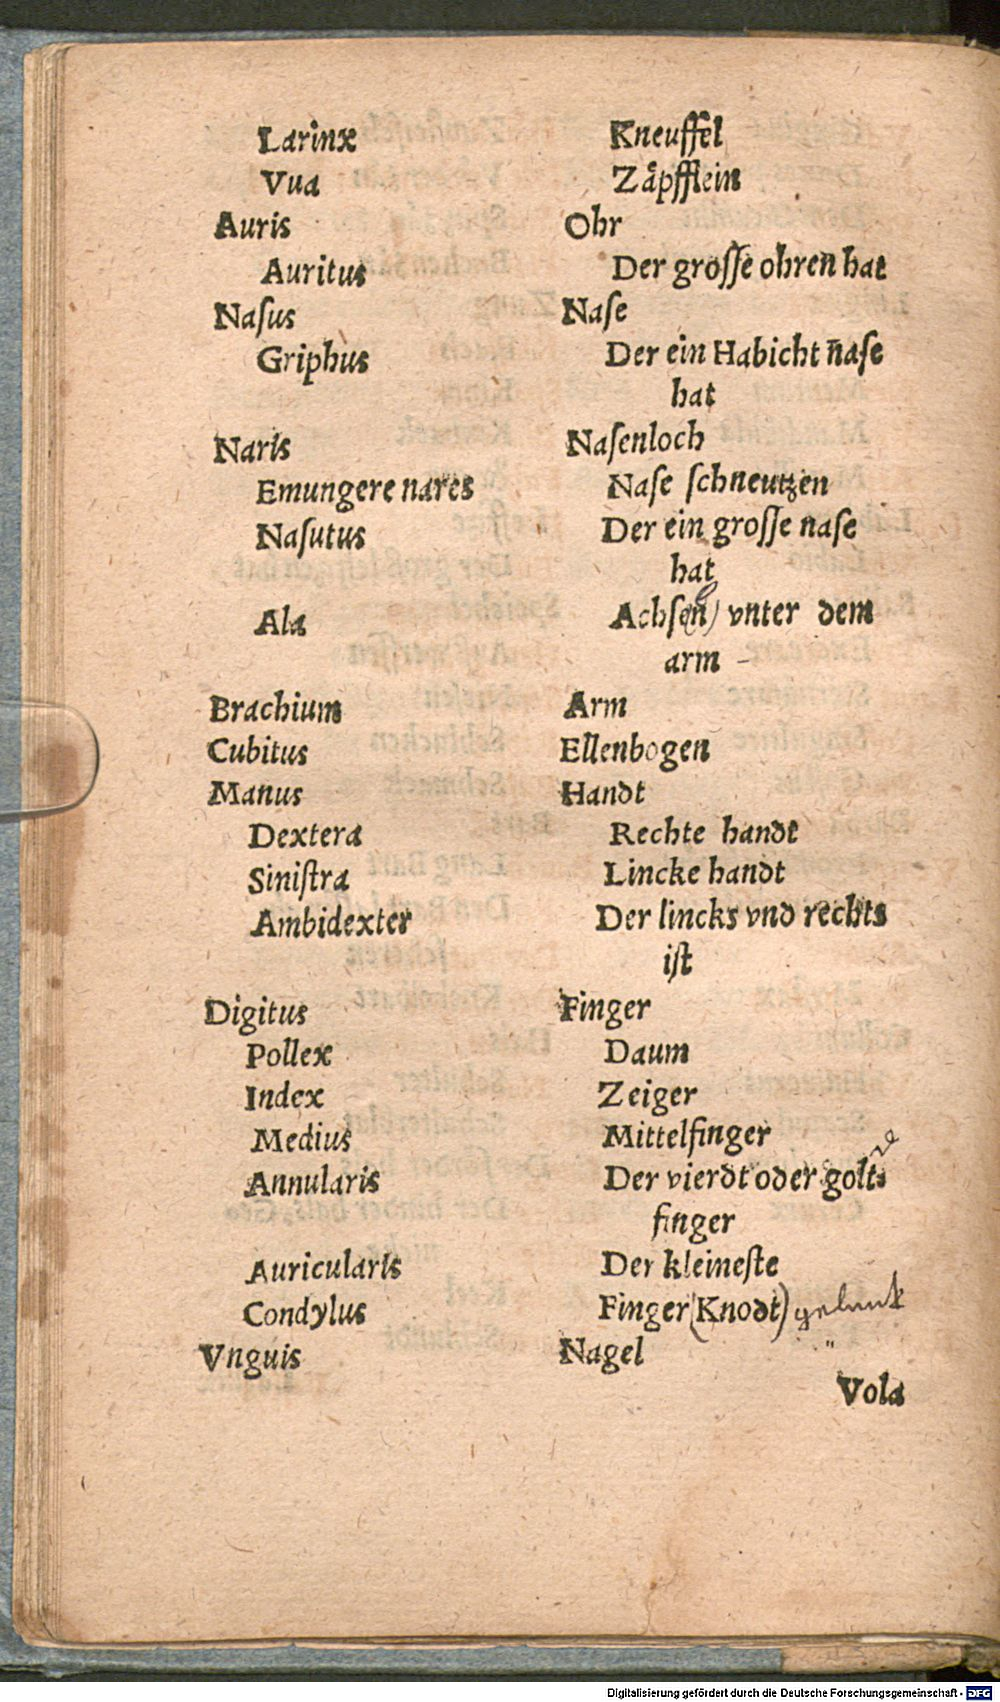 Larinx Kneuffel
Vua Zäpfflein
Auris Ohr
Auritus Der groſſe ohren hat
Naſus Naſe
Griphus Der ein Habicht n̄aſe
hat
Naris Naſenloch
Emungere nares Naſe ſchneutzen
Naſutus Der ein groſſe naſe
hat
Ala Achſen) vnter dem
arm
Brachium Arm
Cubitus Ellenbogen
Manus Handt
Dextera Rechte handt
Siniſtra Lincke handt
Ambidexter Der lincks vnd rechts
iſt
Digitus Finger
Pollex Daum
Index Zeiger
Medius Mittelfinger
Annularis Der vierdt oder golt
finger
Auricularis Der kleineſte
Condylus Finger (Knodt) gelenk
Vnguis Nagel
Vola
Digitalisierung gefördert durch die Deutsche Forschungsgemeinschaft - DFG